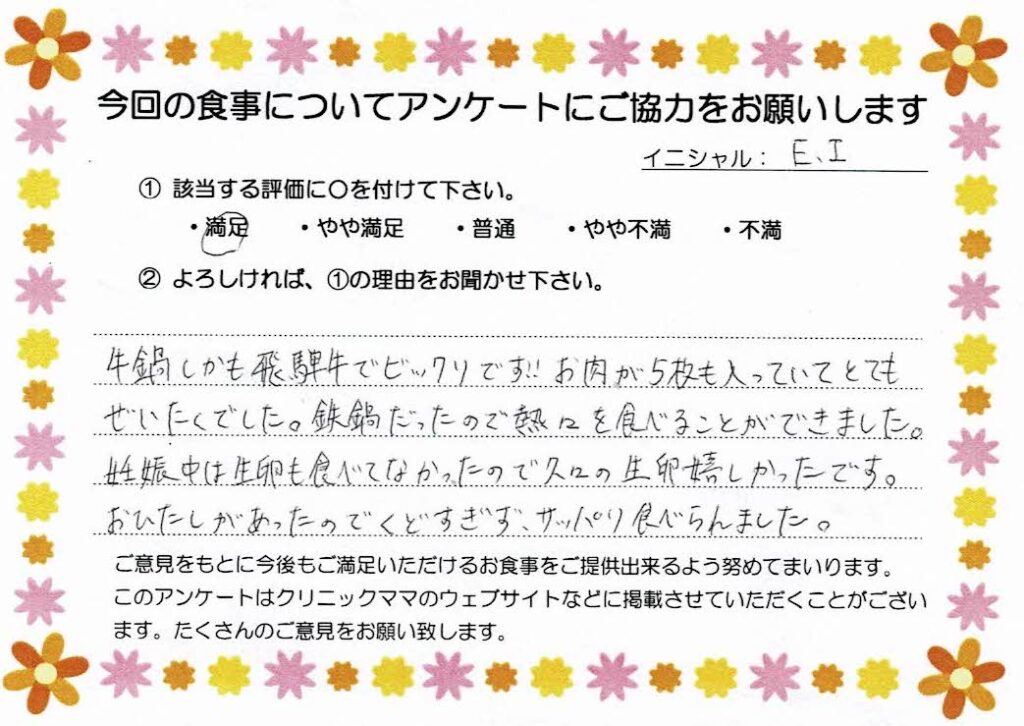 今回の食事についてアンケートにご協力をお願いします
イニシャル： E、I
① 該当する評価に〇を付けて下さい。
・満足 ・やや満足 ・普通 ・やや不満 ・不満
② よろしければ、①の理由をお聞かせ下さい。
牛鍋しかも飛騨牛でビックリです!! お肉が5枚も入っていてとても
ぜいたくでした。鉄鍋だったので熱々を食べることができました。
妊娠中は生卵も食べてなかったので久々の生卵嬉しかったです。
おひたしがあったのでくどすぎず、サッパリ食べらんました。
ご意見をもとに今後もご満足いただけるお食事をご提供出来るよう努めてまいります。
このアンケートはクリニックママのウェブサイトなどに掲載させていただくことがござい
ます。たくさんのご意見をお願い致します。